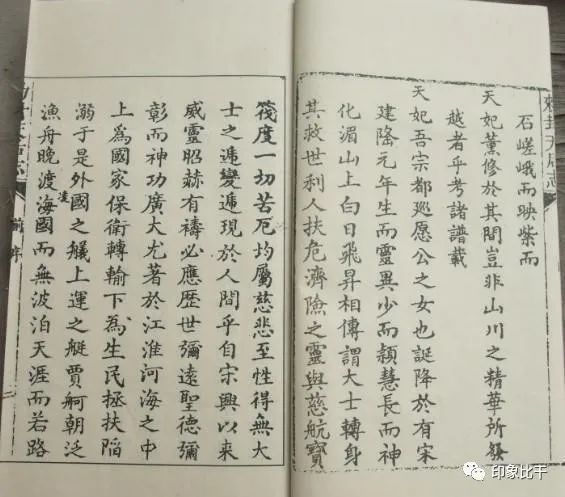 敕封天后志
石嵯峨而映柴而
天妃薰修於其間豈非山川之精華所發
越者乎考諸譜載
天妃吾宗都巡愿公之女也誕降於有宋
建隆元年生而靈異少而穎慧長而神
化湄山上白日飛昇相傳謂大士轉身
其救世利人扶危濟險之靈與慈航寶
筏度一切苦厄均屬慈悲至性得無大
士之遞變遞現於人間乎自宋興以來
威靈昭赫有禱必應歷世彌遠聖德彌
彰而神功廣大尤著於江淮河海之中
上爲國家保衛轉輸下為生民拯扶陷
溺于是外國之艤上運之艇賈舸朝泛
漁舟晚渡凌海國而無波泊天涯而若路
序
印象比干